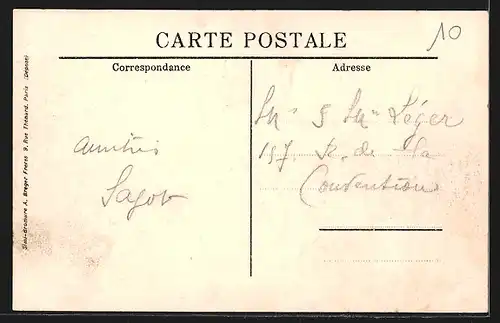 10
CARTE POSTALE
Correspondance
Adresse
Amitiés
Sagot
Mr & Mme Léger
197 R. de la
Convention
A. Breger Frères 9, Rue Thénard, Paris (Déposé)